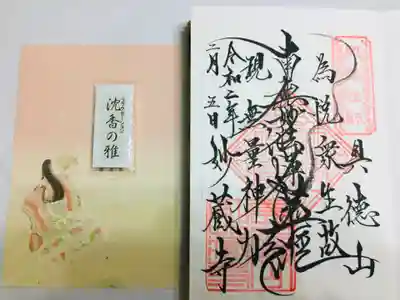 沈香の雅
具徳山
為悦衆生故
南無妙法蓮華経
現無量神力
妙蔵寺
令和二年
二月五日